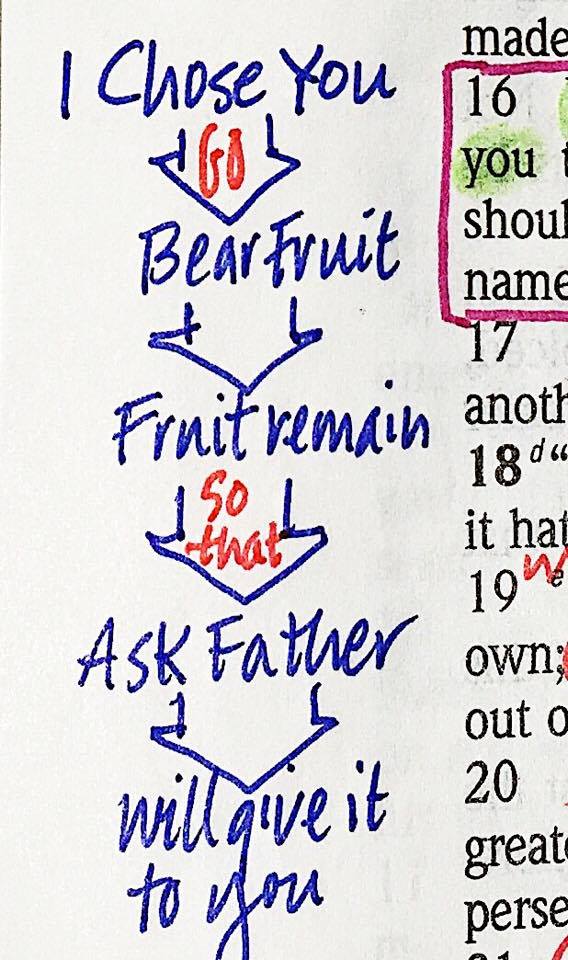 I Chose You
GO
Bear Fruit
Fruit remain
So
that
Ask Father
will give it
to you
made
16
you
shoul
name
17
anoth
18 d "
it hat
19 e
own;
out o
20
greate
perse